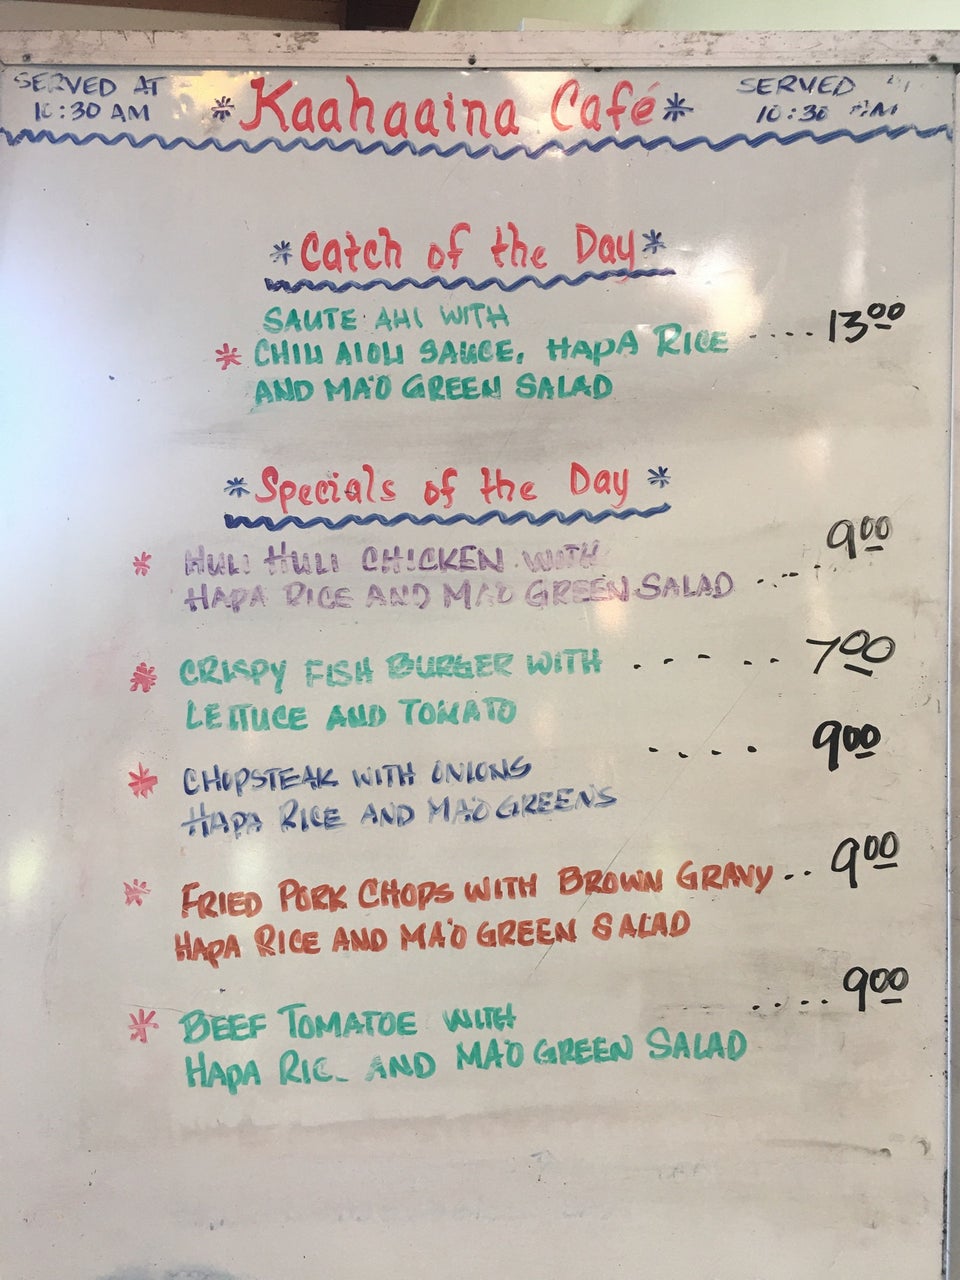 SERVED AT
10:30 AM
*Kaahaaina Café*
SERVED
10:30 AM
*Catch of the Day*
SAUTE AHI WITH
* CHILI AIOLI SAUCE, HAPA RICE .... 13.00
AND MA'O GREEN SALAD
*Specials of the Day*
* HULI HULI CHICKEN WITH 9.00
HAPA RICE AND MA'O GREEN SALAD ....
* CRISPY FISH BURGER WITH ...... 7.00
LETTUCE AND TOMATO
.... 9.00
* CHOPSTEAK WITH ONIONS
HAPA RICE AND MA'O GREENS
* FRIED PORK CHOPS WITH BROWN GRAVY .. 9.00
HAPA RICE AND MA'O GREEN SALAD
.... 9.00
* BEEF TOMATOE WITH
HAPA RIC AND MA'O GREEN SALAD